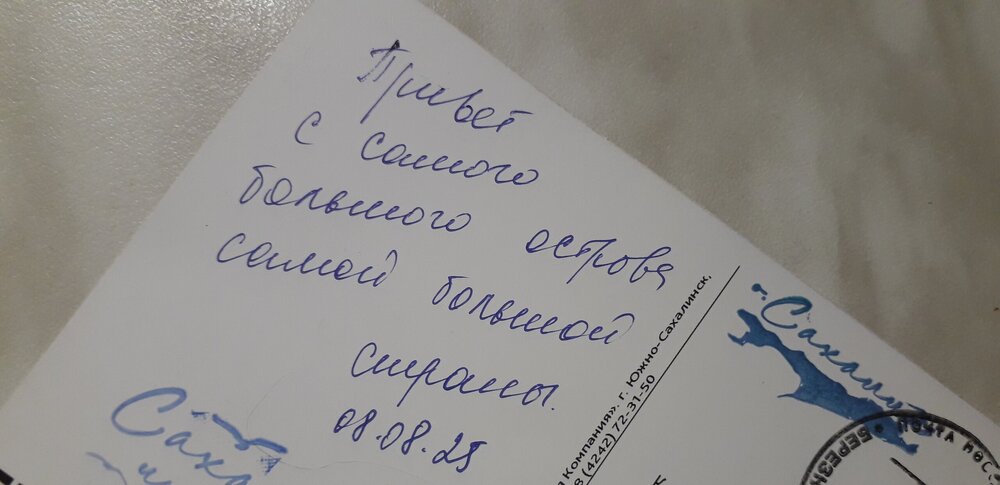 Привет
с самого
большого острова
самой большой
страны.
08.08.25
Компания». г. Южно-Сахалинск,
8 (4242) 72-31-50
о. Сахалин
Саха